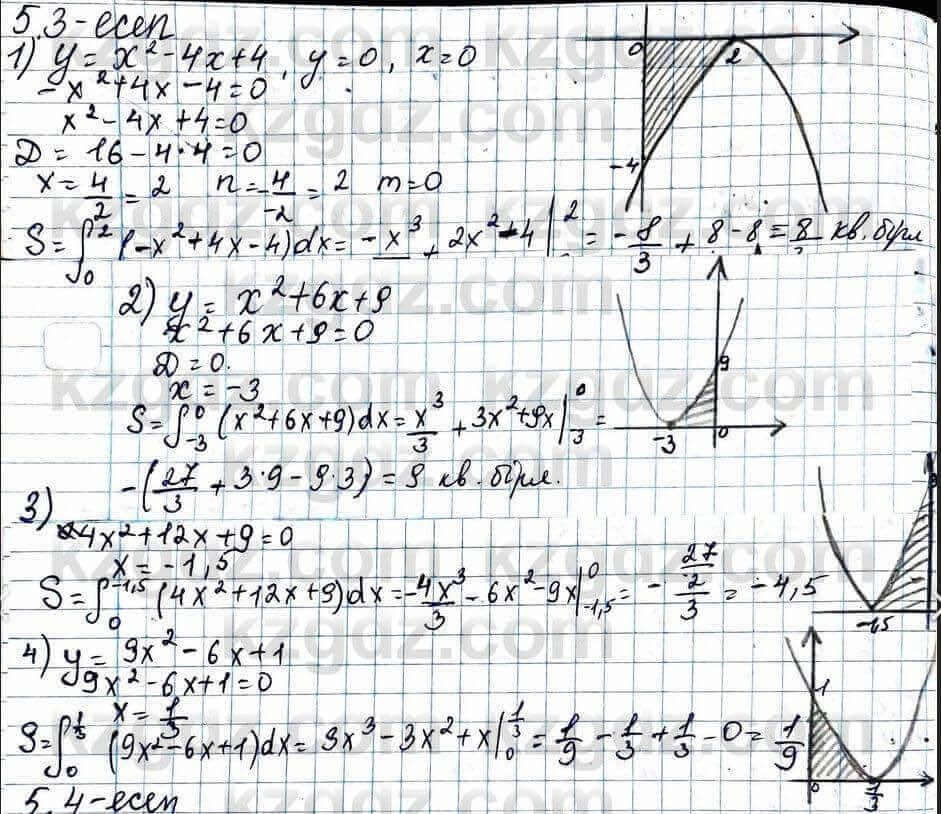 5.3-есеп
1) y = x² - 4x + 4, y = 0, x = 0
-x² + 4x - 4 = 0
x² - 4x + 4 = 0
D = 16 - 4·4 = 0
x = 4/2 = 2 n = -4/-2 = 2 m = 0
S = ∫₀² (-x² + 4x - 4)dx = -x³ + 2x² - 4 |² = -8/3 + 8 - 8 = 8 кв. бірл
0 2 -4
2) y = x² + 6x + 9
x² + 6x + 9 = 0
D = 0.
x = -3
S = ∫₋₃⁰ (x² + 6x + 9)dx = x³/3 + 3x² + 9x |₋₃⁰ =
9 -3 0
-(27/3 + 3·9 - 9·3) = 9 кв. бірл.
3)
4x² + 12x + 9 = 0
x = -1,5
S = ∫₀^-1,5 (4x² + 12x + 9)dx = -4x³/3 - 6x² - 9x |₋₁,₅⁰ = - 27/2/3 = -4,5
-1,5
4) y = 9x² - 6x + 1
9x² - 6x + 1 = 0
x = 1/3
S = ∫₀^1/3 (9x² - 6x + 1)dx = 3x³ - 3x² + x |₀^1/3 = 1/9 - 1/3 + 1/3 - 0 = 1/9
1 0 1/3
5.4-есеп
kzgdz.com